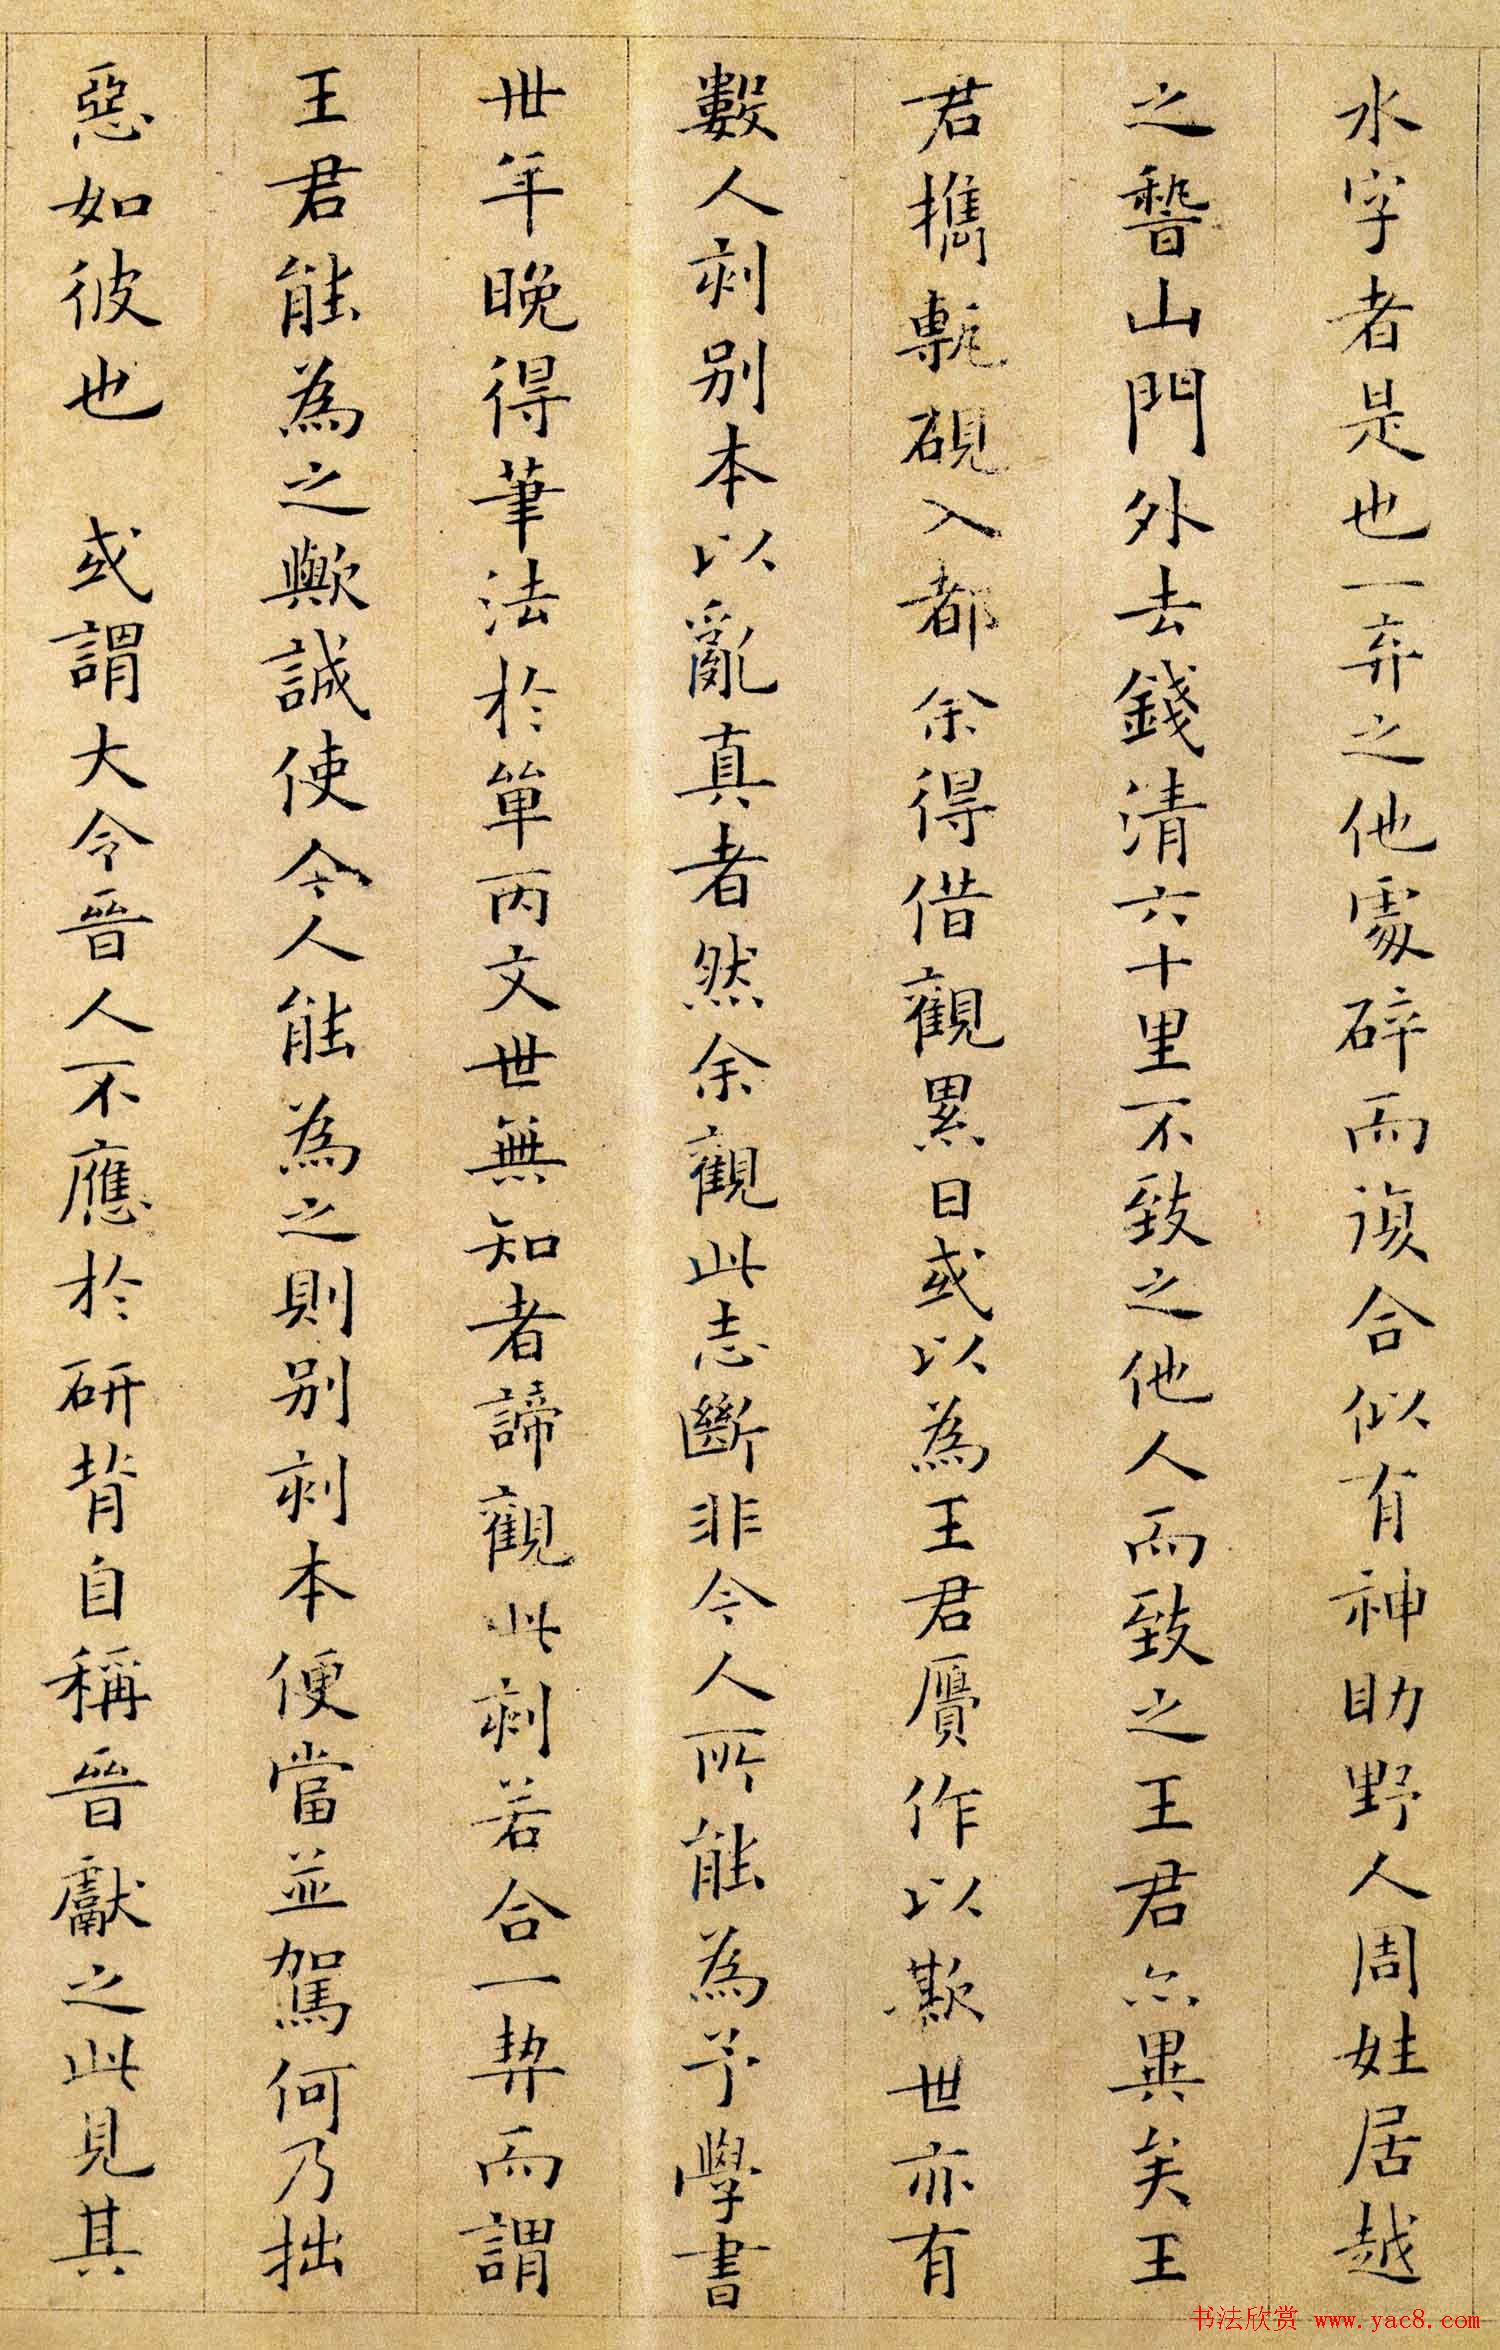 水字者是也一弃之他處碎而復合似有神助野人周姓居越
之稽山門外去錢清六十里不致之他人而致之王君亦異矣王
君携甎硯入都余得借觀累日或以為王君贗作以欺世亦有
數人刻别本以亂真者然余觀此志斷非今人所能為予學書
卅年晚得筆法於單丙文世無知者諦觀此刻若合一契而謂
王君能為之歟誠使今人能為之則别刻本便當並駕何乃拙
惡如彼也 或謂大令晉人不應於研背自稱晉獻之此見其
书法欣赏 www.yac8.com